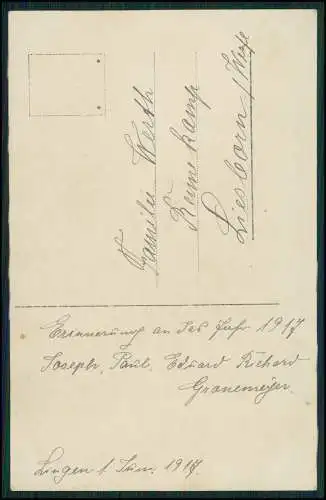 Familie Werth
Kemekamp
Liesborn / Westf
Erinnerung an das Jahr 1917
Joseph, Paul, Eduard Richard
Gronemeyer.
Lingen 1 Juni 1917.